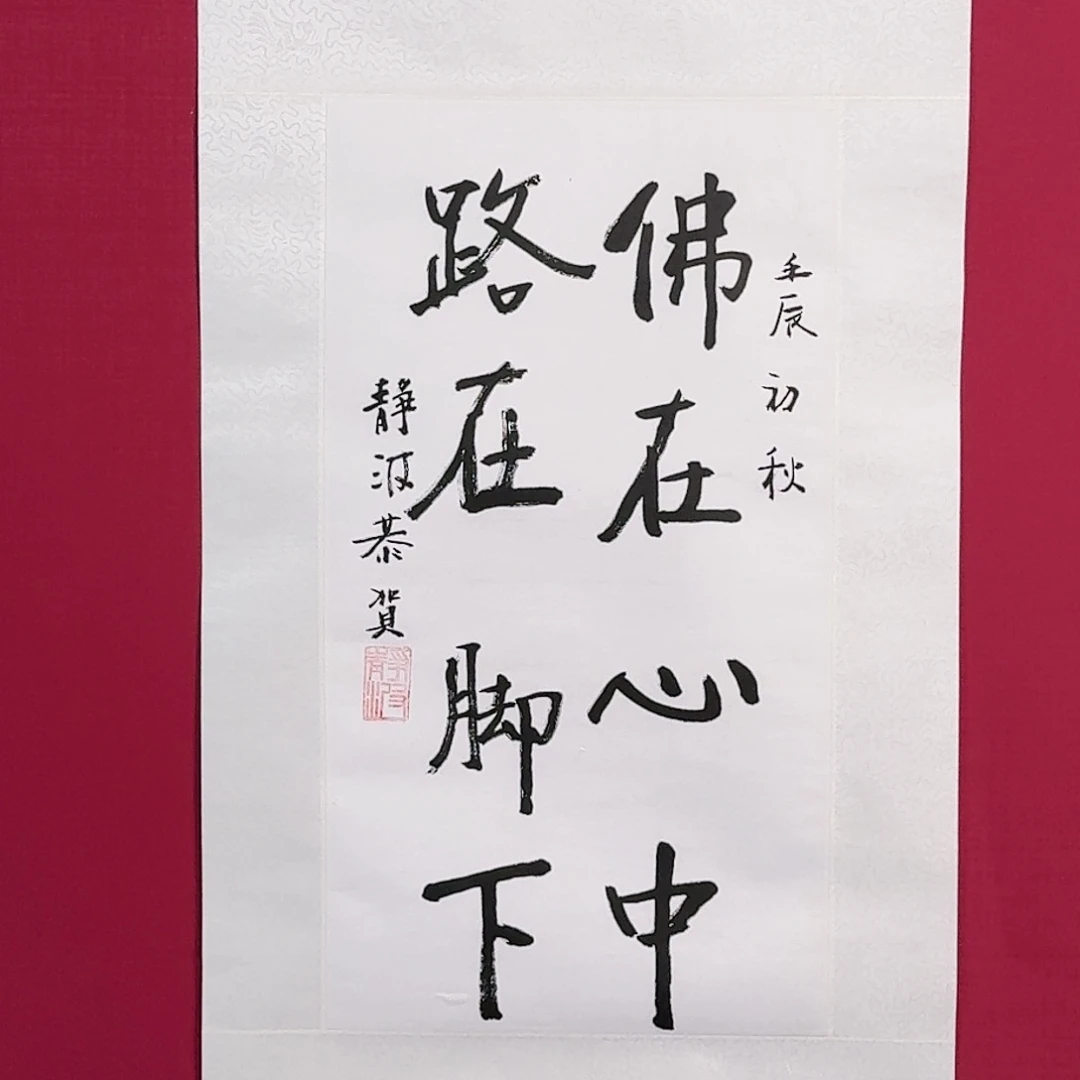 壬辰初秋
佛在心中
路在脚下
静波恭贺